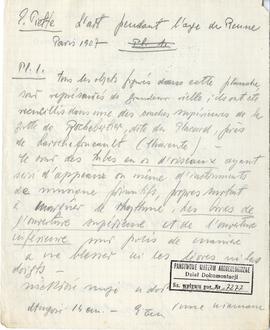 E. Piette L'art pendant l'age du Renne
Paris 1907
Pl. 1. Tous les objets figurés dans cette planche
sont représentés de grandeur réelle; ils ont été
recueillis dans une des couches supérieures de la
grotte de Rochebertier, dite du Placard, près
de Larochefoucault (Charente).
Ce sont des tubes en os d'oiseaux ayant
servi d'appeaux ou même d'instruments
de musique primitifs, propres surtout
à marquer le rhythme; les bords de
l'ouverture supérieure et de l'ouverture
inférieure sont polis de manière
à ne blesser ni les lèvres ni les
doigts.
PAŃSTWOWE MUZEUM ARCHEOLOGICZNE
Dział Dokumentacji
Ks. wpływu poz. Nr 7277
14 cm.